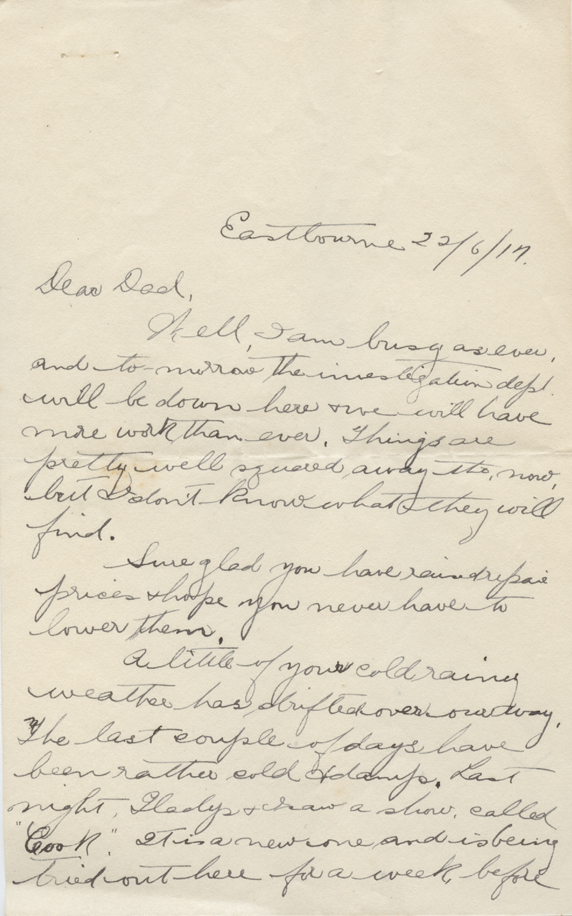 Eastbourne 22/6/17.
Dear Dad,
Well, I am busy as ever,
and to-morrow the investigation dept.
will be down here & we will have
more work than ever. Things are
pretty well squared away tho, now,
but I don't know what they will
find.
Sure glad you have raised repair
prices & hope you never have to
lower them.
A little of your cold rainy
weather has drifted over our way.
The last couple of days have
been rather cold & damp. Last
night, Gladys & I saw a show, called
It is a new one and is being
tried out here for a week before